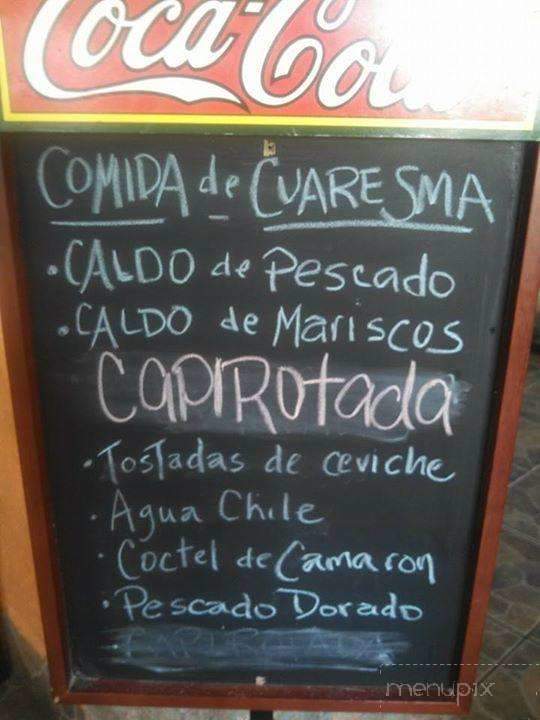 Coca-Cola
COMIDA de CUARESMA
• CALDO de Pescado
• CALDO de Mariscos
CAPIROtada
• Tostadas de ceviche
• Agua Chile
• Coctel de Camaron
• Pescado Dorado
CAPIROTADA
menupix